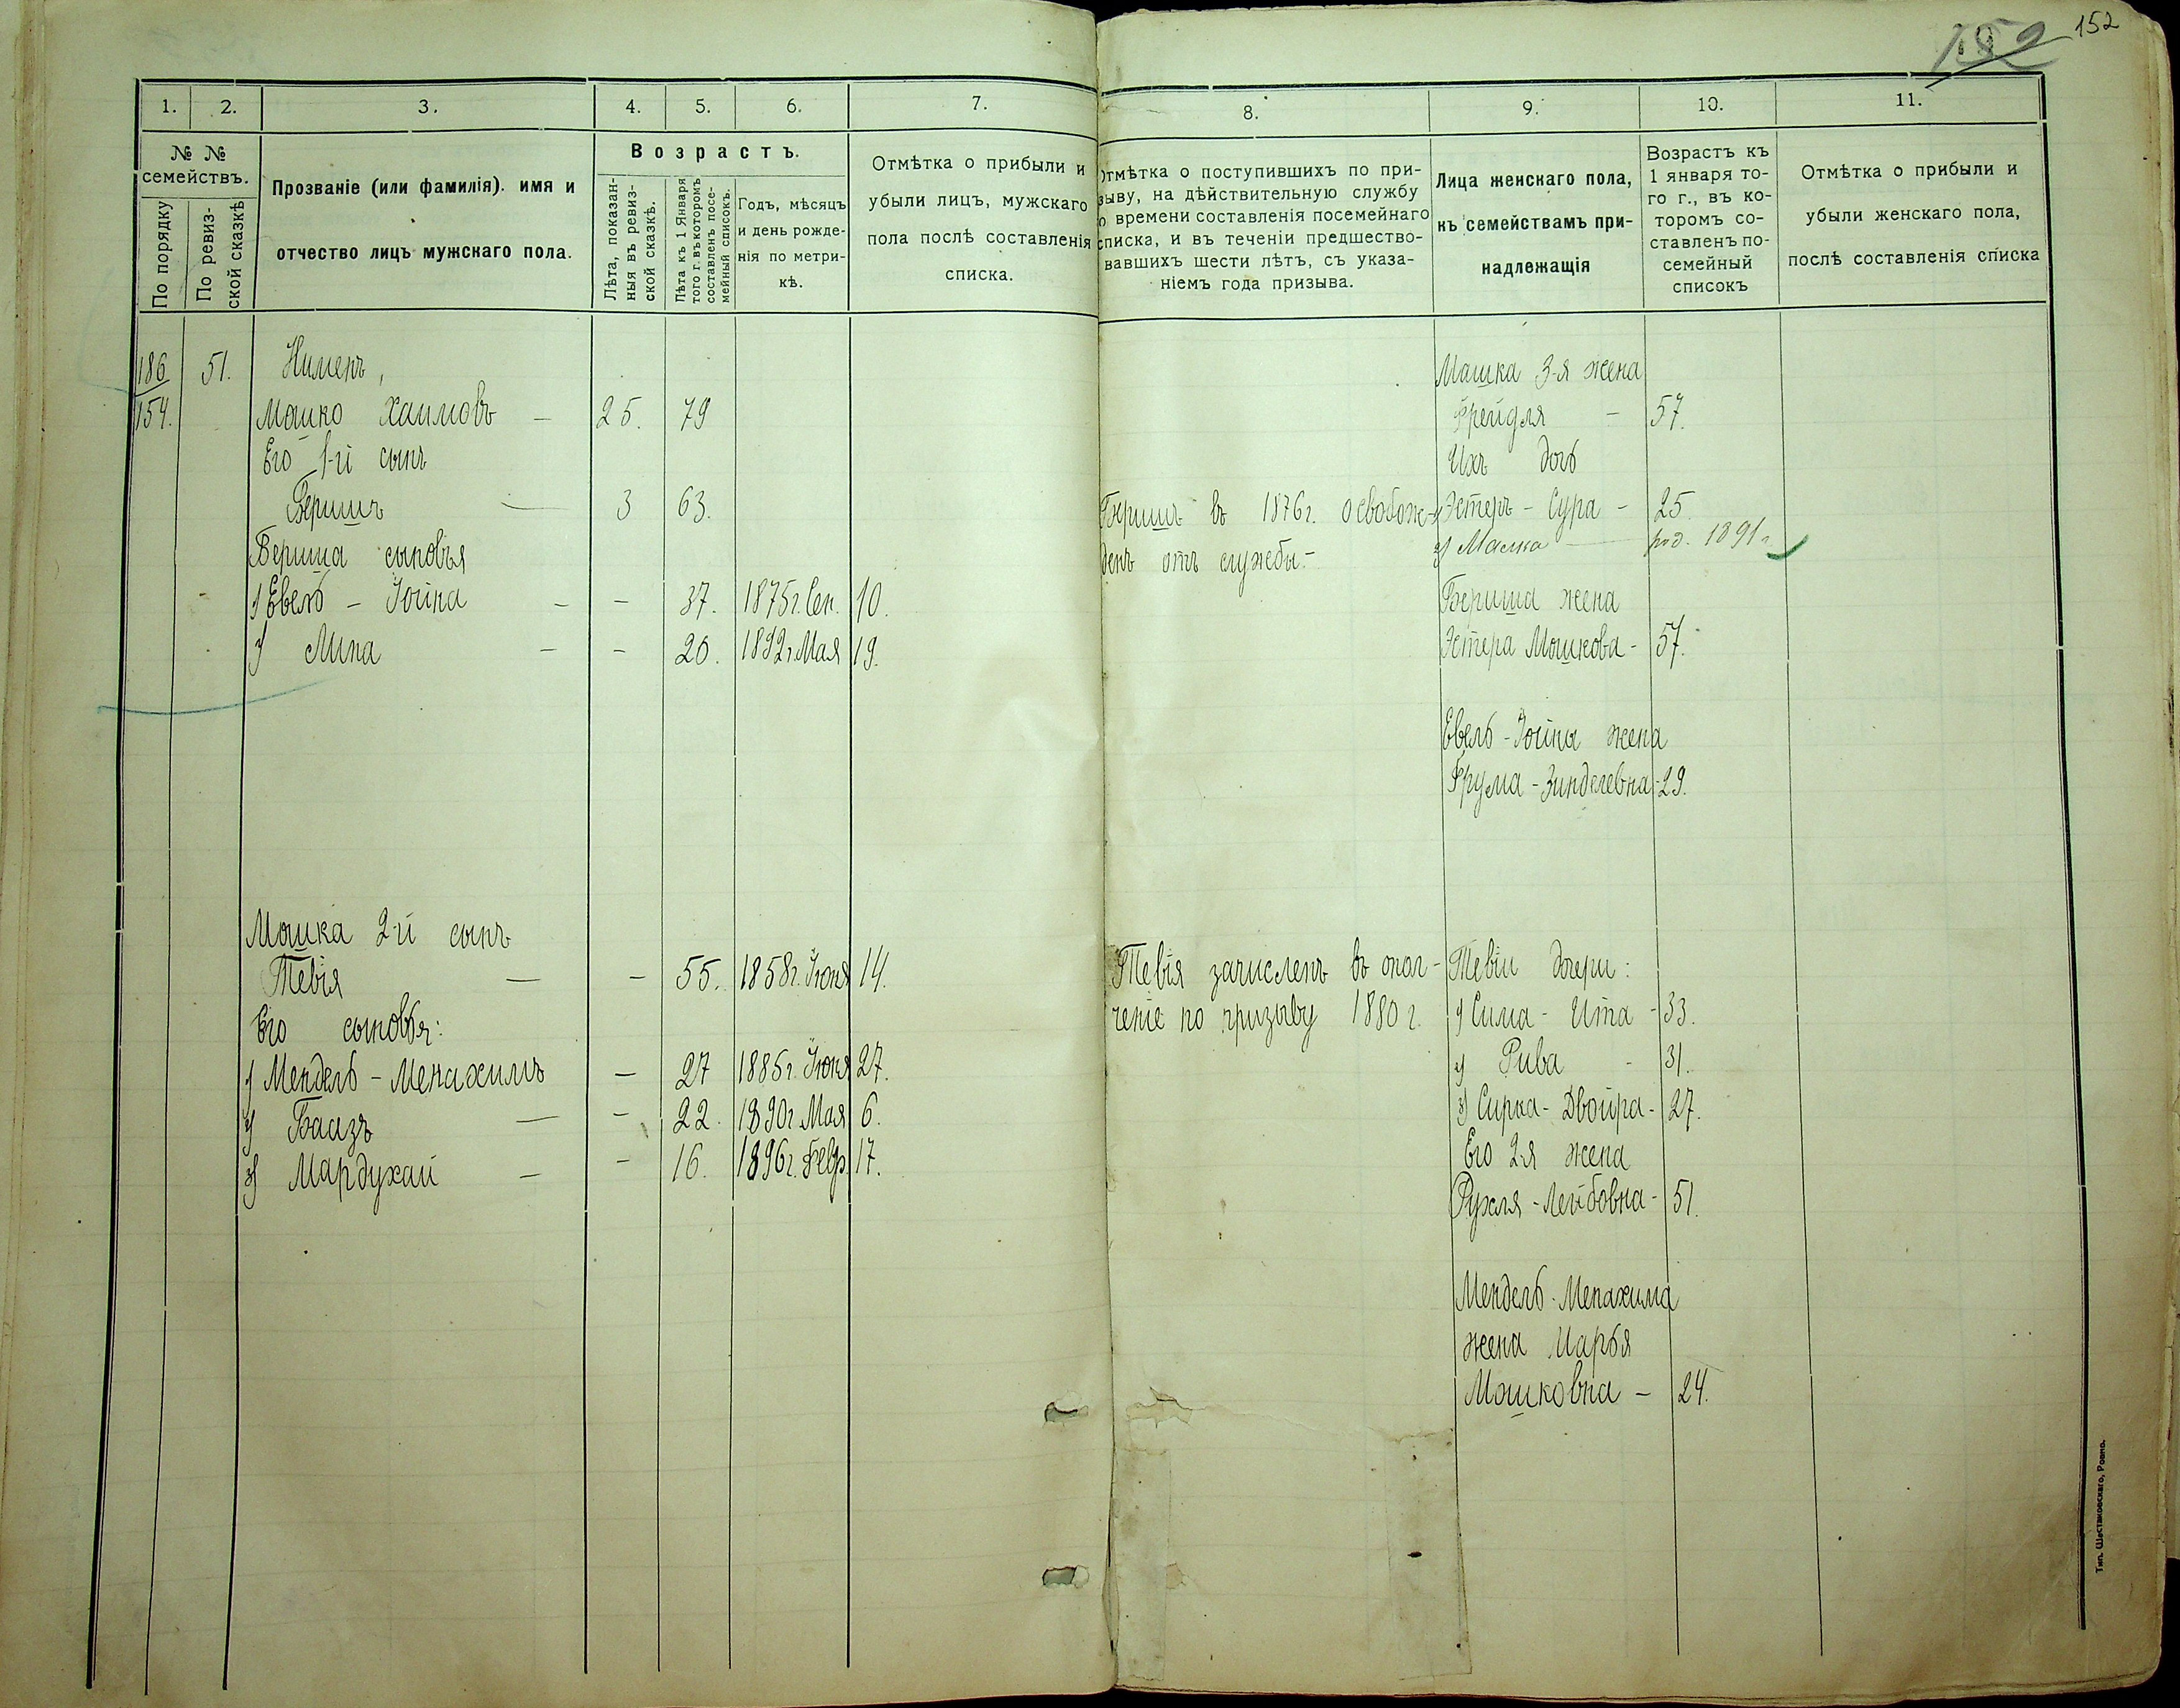 152
152
1. 2. 3. 4. 5. 6. 7. 8. 9. 10. 11.
№ №
семействъ.
По порядку
По ревиз-
ской сказкѣ
Прозваніе (или фамилія). имя и
отчество лицъ мужскаго пола.
Возрастъ.
Лѣта, показан-
ныя въ ревиз-
ской сказкѣ.
Лѣта къ 1 Января
того г. въ которомъ
составленъ посе-
мейный списокъ.
Годъ, мѣсяцъ
и день рожде-
нія по метри-
кѣ.
Отмѣтка о прибыли и
убыли лицъ, мужскаго
пола послѣ составленія
списка.
Отмѣтка о поступившихъ по при-
зыву, на дѣйствительную службу
о времени составленія посемейнаго
списка, и въ теченіи предшество-
вавшихъ шести лѣтъ, съ указа-
ніемъ года призыва.
Лица женскаго пола,
къ семействамъ при-
надлежащія
Возрастъ къ
1 января то-
го г., въ ко-
торомъ со-
ставленъ по-
семейный
списокъ
Отмѣтка о прибыли и
убыли женскаго пола,
послѣ составленія списка
186 51. Нименъ, Машка 3-я жена
154. Мошко Хаимовъ — 25. 79 Фрейдля — 57.
Его 1-й сынъ Ихъ дочь
Беришъ — 3 63. Беришъ въ 1876 г. освобож- 1) Эстеръ - Сура - 25.
Бериша сыновья денъ отъ службы.- 2) Малка — род. 1891 г.
1) Евель - Іойна - - 37. 1875 г. Сен. 10. Бериша жена
2) Липа - - 20. 1892 г. Мая 19. Эстера Мошкова - 57.
Евель-Іойны жена
Фрума - Зинделевна - 29.
Мошка 2-й сынъ
Тевія — - 55. 1858 г. Іюня 14. Тевія зачисленъ въ опол- Тевіи дочери:
Его сыновья: ченіе по призыву 1880 г. 1) Сима - Ита - 33.
1) Мендель - Менахимъ - 27 1885 г. Іюня 27. 2) Рива - 31.
2) Баазъ — - 22. 1890 г. Мая 6. 3) Сирка - Двойра - 27.
3) Мардухай — - 16. 1896 г. Февр. 17. Его 2-я жена
Рухля - Лейбовна - 51.
Мендель-Менахима
жена Марья
Мошковна - 24.
Тип. Шестаковскаго, Ровно.